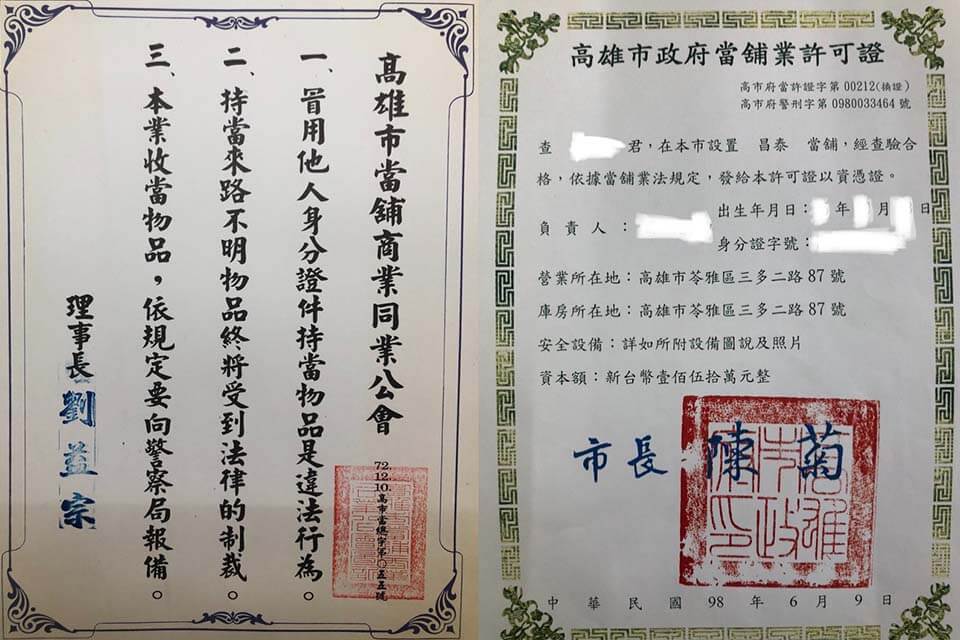 高雄市當舖商業同業公會
一、冒用他人身分證件持當物品是違法行為。
二、持當來路不明物品終將受到法律的制裁。
三、本業收當物品，依規定要向警察局報備。
理事長 劉益宗
72.12.10.高市當總字第○五五號
高雄市政府當舖業許可證
高市府當許證字第00212(換證)
高市府警刑字第0980033464號
查 君，在本市設置 昌泰 當舖，經查驗合
格，依據當舖業法規定，發給本許可證以資憑證。
負責人：
出生年月日： 年 月 日
身分證字號：
營業所在地：高雄市苓雅區三多二路87號
庫房所在地：高雄市苓雅區三多二路87號
安全設備：詳如所附設備圖說及照片
資本額：新台幣壹佰伍拾萬元整
市長 陳菊
高雄市政府印
中華民國 98 年 6 月 9 日